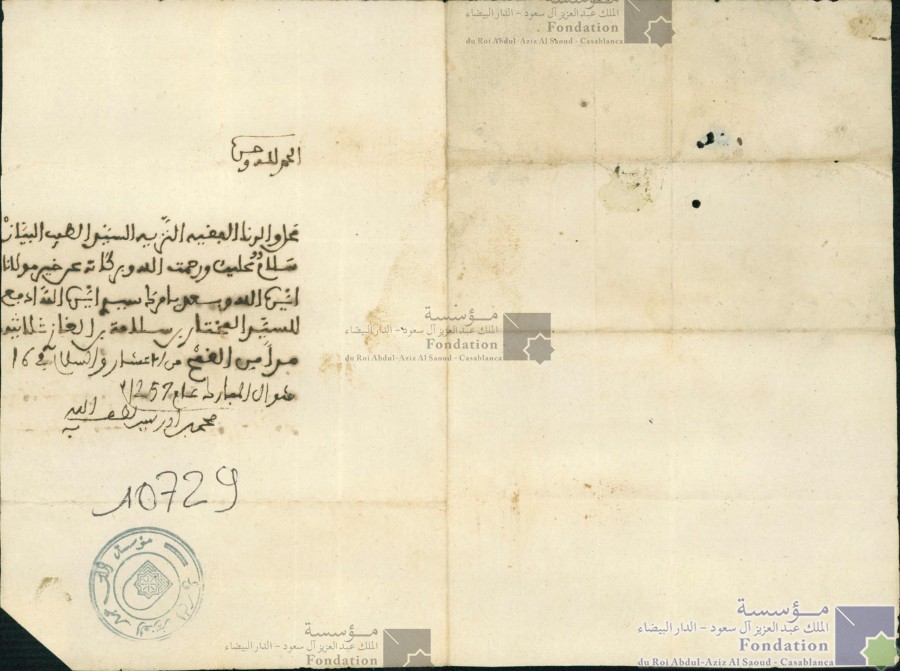 الحمد لله وحده
محل والدنا الفقيه النزيه السيد الطيب البياز
سلام عليك ورحمت الله وبركاته عن خير مولانا
ايده الله وبعد يامرك سيدنا ايده الله ادفع
للسيد المختار بن سلامة بن الغاز ثلاثين
من القمح من الاعشار والسلام في 16
شوال المبارك عام 1257
محمد بن ادريس لطف الله به
10729
مؤسسة
الملك عبد العزيز آل سعود - الدار البيضاء
Fondation
du Roi Abdul-Aziz Al Saoud - Casablanca
مؤسسة
الملك عبد العزيز آل سعود - الدار البيضاء
Fondation
du Roi Abdul-Aziz Al Saoud - Casablanca
مؤسسة
الملك عبد العزيز آل سعود - الدار البيضاء
Fondation
مؤسسة
الملك عبد العزيز آل سعود - الدار البيضاء
Fondation
du Roi Abdul-Aziz Al Saoud - Casablanca